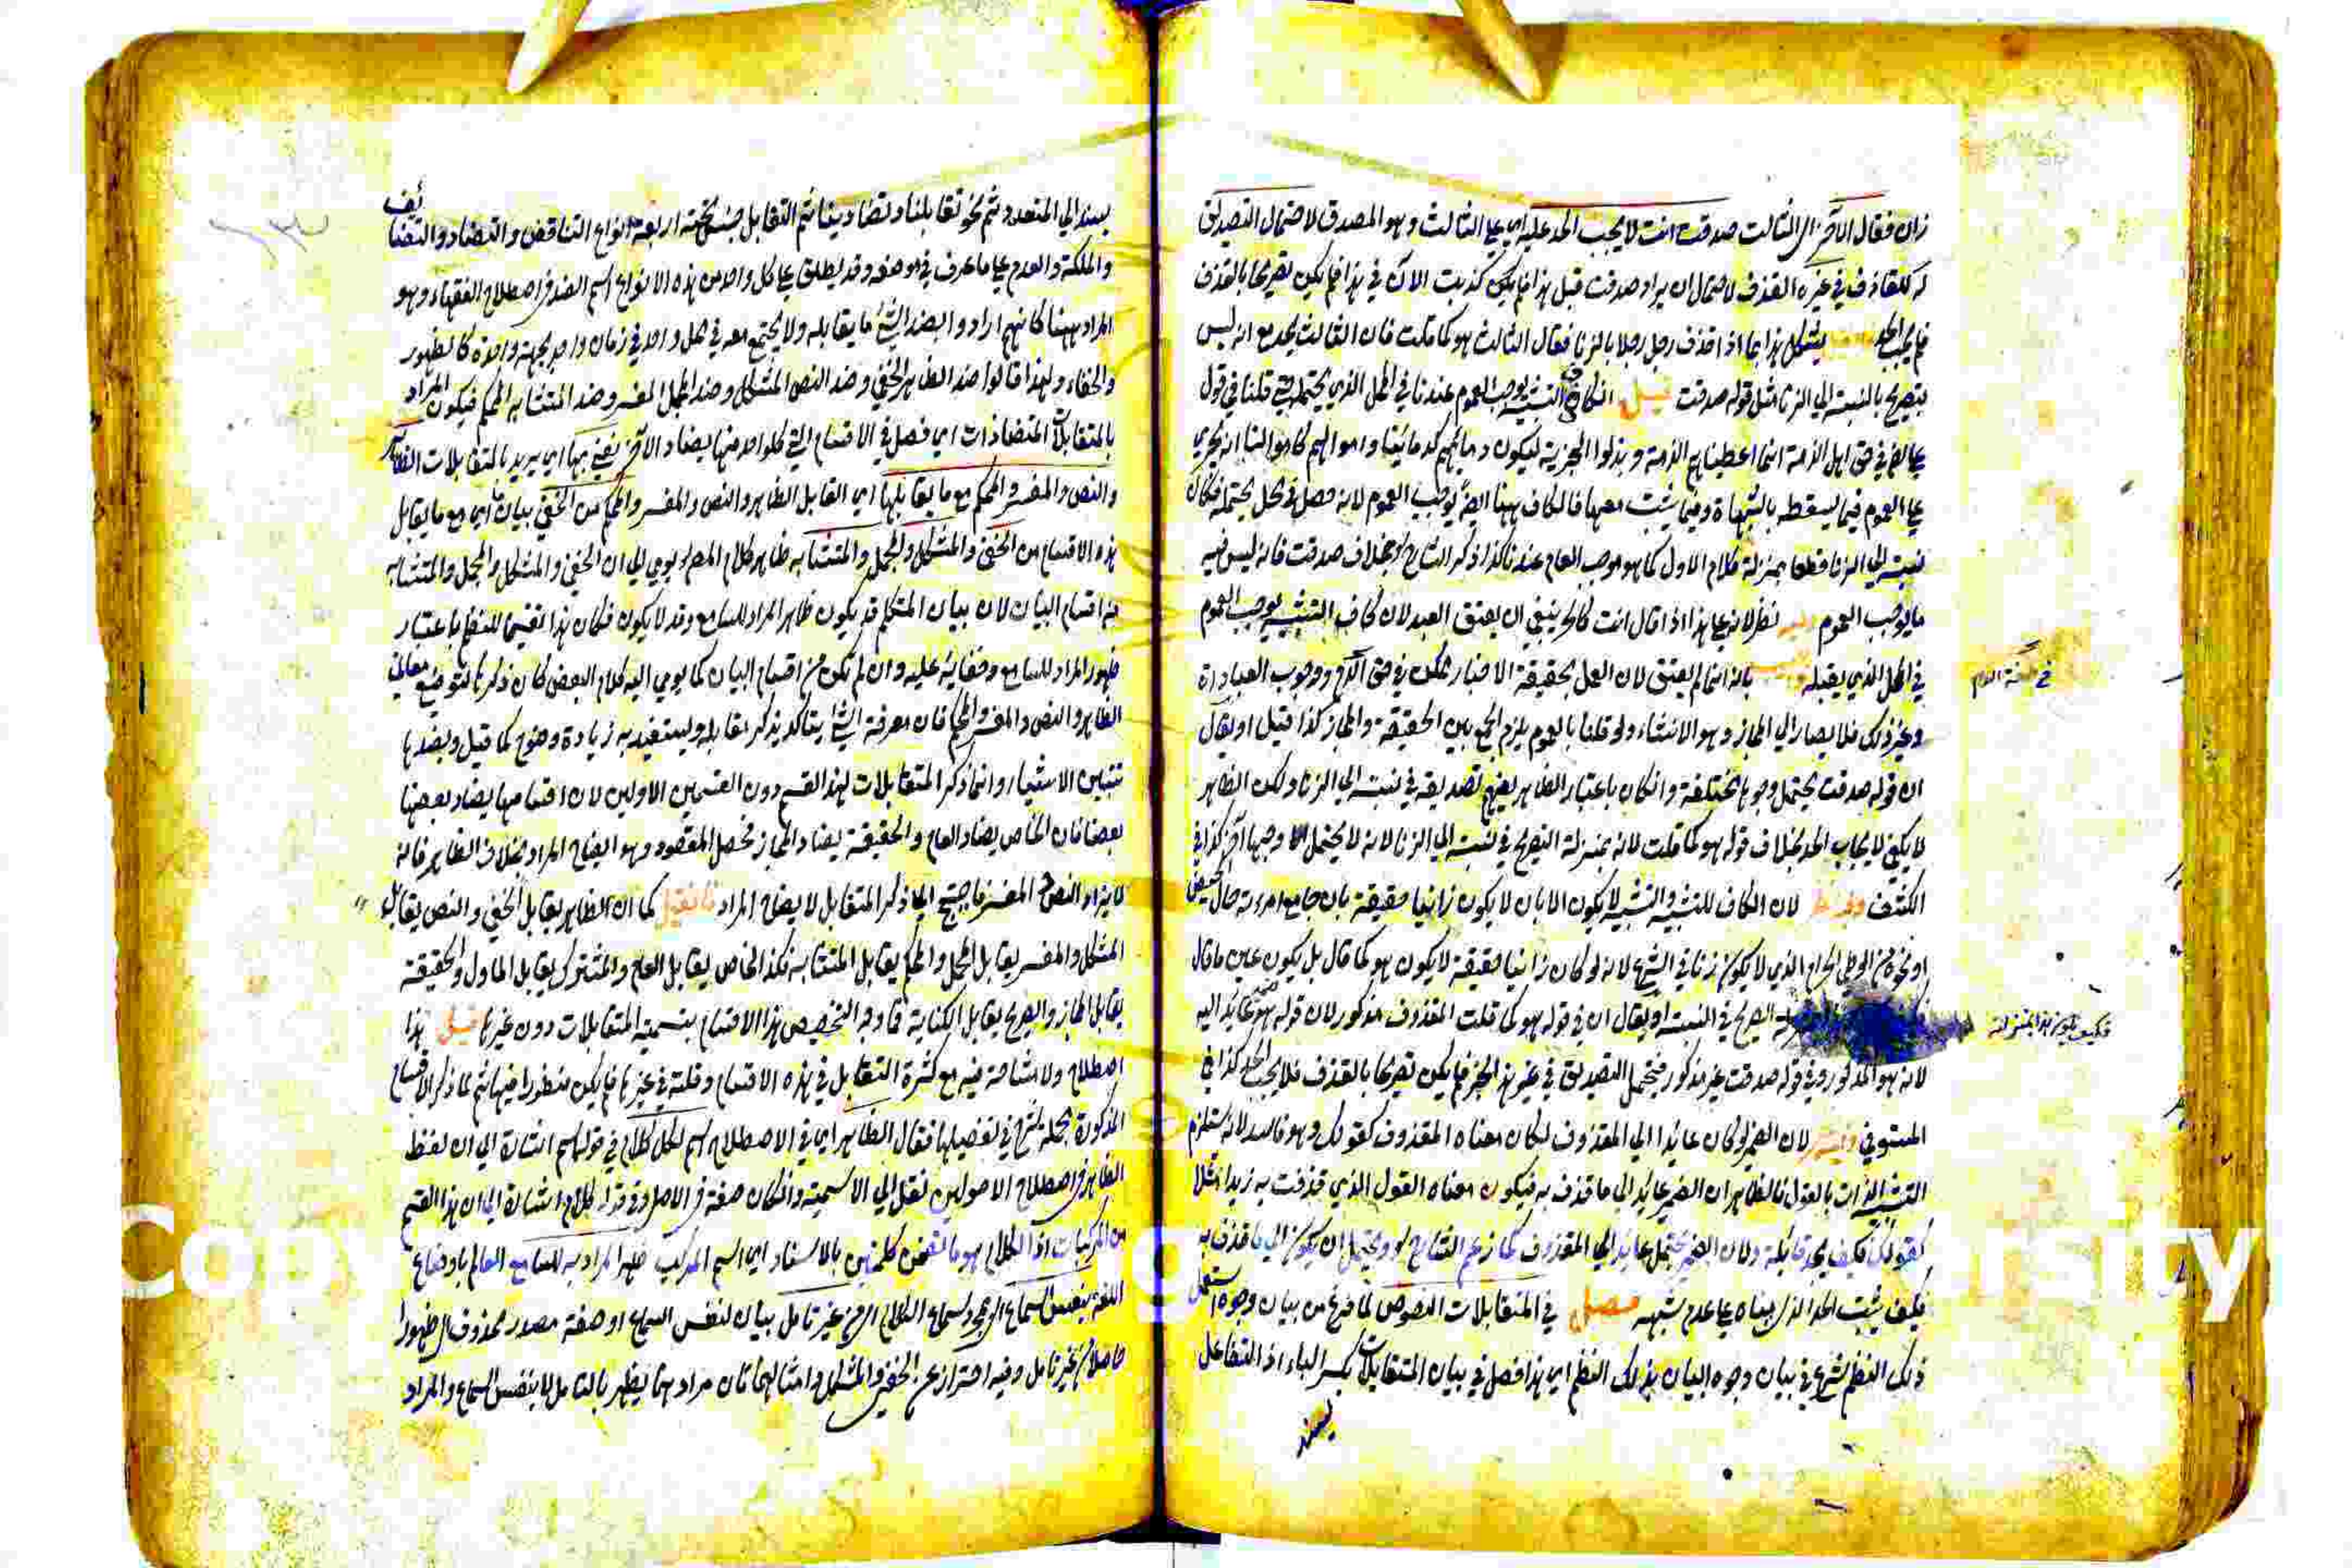 زان فقال الآخر اي الثالث صدقت انت لا يجب الحد عليه اي على الثالث وهو المصدق لاحتمال التصديق
له كالقاذف في غيره القذف لاحتمال ان يراد صدقت قبل هذا فلم يكن كذبت الآن في هذا فلم يكن تصريحا بالقذف
فلم يجب الحد يشكل هذا بما اذا قذف رجل رجلا بالزنا فقال الثالث هو كما قلت فان الثالث يحد مع انه ليس
بتصريح بالنسبة الى الزنا مثل قوله صدقت قيل الكاف التشبيه يوجب العموم عندنا في المحل الذي يحتمله قلنا في قول
علي رض في حق اهل الذمة انما اعطيناهم الذمة و بذلوا الجزية ليكون دماؤهم كدمائنا و اموالهم كاموالنا انه يجري
على العموم فيما يسقط بالشبهات وفيما يثبت معها فالكاف ههنا ايضا يوجب العموم لانه حصل في محل يحتمله فكان
نسبة الى الزنا قطعا بمنزلة كلام الاول كما هو موجب العام عندنا كذا ذكر الشارح بخلاف صدقت فانه ليس فيه
ما يوجب العموم نظر لانه على هذا اذا قال انت كالحر ينبغي ان يعتق العبد لان كاف التشبيه يوجب العموم
في المحل الذي يقبله بانه انما لم يعتق لان العمل بحقيقة الاخبار ممكن في حق الدم ووجوب العبادات
وغير ذلك فلا يصار الى المجاز وهو الانشاء ولو قلنا بالعموم يلزم الجمع بين الحقيقة والمجاز كذا قيل او يقال
ان قوله صدقت يحتمل وجوها مختلفة وان كان باعتبار الظاهر يفهم تصديقه في نسبته الى الزنا ولكن الظاهر
لا يكفي لايجاب الحد بخلاف قوله هو كما قلت لانه بمنزلة التصريح في نسبته الى الزنا لانه لا يحتمل وجها آخر كذا في
الكشف وفيه نظر لان الكاف للتشبيه والتشبيه لا يكون الا بان لا يكون زانيا حقيقة بان جامع امرءته حال الحيض
او نحوه من الوطي الحرام الذي لا يكون زنا في الشرع لانه لو كان زانيا حقيقة لا يكون هو كما قال بل يكون عين ما قال
الصريح في النسبة او يقال ان في قوله هو كما قلت المقذوف مذكور لان قوله هو ضمير عائد اليه
لانه هو المذكور وفي قوله صدقت غير مذكور فيحتمل التصديق في غير هذا الخبر فلم يكن تصريحا بالقذف فلا يجب الحد كذا في
المستوفى لان الضمير لو كان عائدا الى المقذوف لكان معناه المقذوف كقولك وهو فاسد لانه يستلزم
التشبيه الذات بالقول فالظاهر ان الضمير عائد الى ما قذف به فيكون معناه القول الذي قذفت به زيدا مثلا
كقولك فكيف يحد قائله ولان الضمير يحتمل عائد الى المقذوف كما زعم الشارح ويحتمل ان يكون الى ما قذف به
فكيف يثبت الحد الذي مبناه على عدم شبهه فصل في المتقابلات النصوص لما فرغ من بيان وجوه استعمال
ذلك النظم شرع في بيان وجوه البيان بذلك النظم اي هذا فصل في بيان المتقابلات بكسر الباء اذ التفاعل
يسند
فكيف يكون هذا بمنزلة
يسند الى المتعدد ثم نحو تقابلنا وتضادينا ثم التقابل جنس تحته اربعة انواع التناقض و التضاد والتضايف
والملكة والعدم على ما عرف في موضعه وقد يطلق على كل واحد من هذه الانواع اسم الضد في اصطلاح الفقهاء وهو
المراد ههنا كانهم ارادوا بضد الشئ ما يقابله ولا يجتمع معه في محل واحد في زمان واحد بجهة واحدة كالظهور
والخفاء ولهذا قالوا ضد الظاهر الخفي وضد النص المشكل وضد المجمل المفسر وضد المتشابه المحكم فيكون المراد
بالمتقابلات المتضادات اي فصل في الاقسام التي كل واحد منها يضاد الآخر يعني بها اي يريد بالمتقابلات الظاهر
والنص والمفسر والمحكم مع ما يقابلها اي القابل الظاهر والنص والمفسر والمحكم من الخفي بيان ما اي مع ما يقابل
هذه الاقسام من الخفي والمشكل والمجمل والمتشابه ظاهر كلام المص يومي الى ان الخفي والمشكل والمجمل والمتشابه
من اقسام البيان لان بيان المتكلم قد يكون ظاهر المراد للسامع وقد لا يكون فكان هذا تقسيما للنظم باعتبار
ظهور المراد للسامع وخفائه عليه وان لم تكن من اقسام البيان كما يومي اليه كلام البعض كان ذكرها لتوضيح معاني
الظاهر والنص والمفسر والمحكم فان معرفة الشئ يتاكد بذكر مقابله ويستفيد به زيادة وضوح كما قيل وبضدها
تتبين الاشياء وانما ذكر المتقابلات لهذا القسم دون القسمين الاولين لان اقسامها يضاد بعضها
بعضا فان الخاص يضاد العام والحقيقة يضاد المجاز فحصل المقصود وهو ايضاح المراد بخلاف الظاهر فانه
لا يضاد النص المفسر فاحتيج الى ذكر المتقابل لايضاح المراد فان قيل كما ان الظاهر يقابل الخفي والنص يقابل
المشكل والمفسر يقابل المجمل والمحكم يقابل المتشابه فكذا الخاص يقابل العام والمشترك يقابل الماول والحقيقة
يقابل المجاز والصريح يقابل الكناية فما وجه التخصيص هذا الاقسام بتسمية المتقابلات دون غيرها قيل هذا
اصطلاح ولا مشاحة فيه مع كثرة التقابل في هذه الاقسام وقلته في غيرها فلم يكن منظورا فيها ثم لما ذكر الاقسام
المذكورة بجملة شرع في تفصيلها فقال الظاهر اي في الاصطلاح اسم لكل كلام في قوله اسم اشارة الى ان لفظ
الظاهر في اصطلاح الاصوليين نقل الى الاسمية وان كان صفة في الاصل وفي قوله كلام اشارة الى ان هذا القسم
من المركبات اذ الكلام هو ما تضمن كلمتين بالاسناد اي اسم المركب ظهر المراد به للسامع العالم باوضاع
اللغة بنفس السماع اي بمجرد سماع الكلام من غير تامل بيان لنفس السماع او صفة مصدر محذوف اي ظهورا
حاصلا من غير تامل وفيه احتراز عن الخفي والمشكل وامثالهما فان مراد هما يظهر بالتامل لا بنفس السماع والمراد